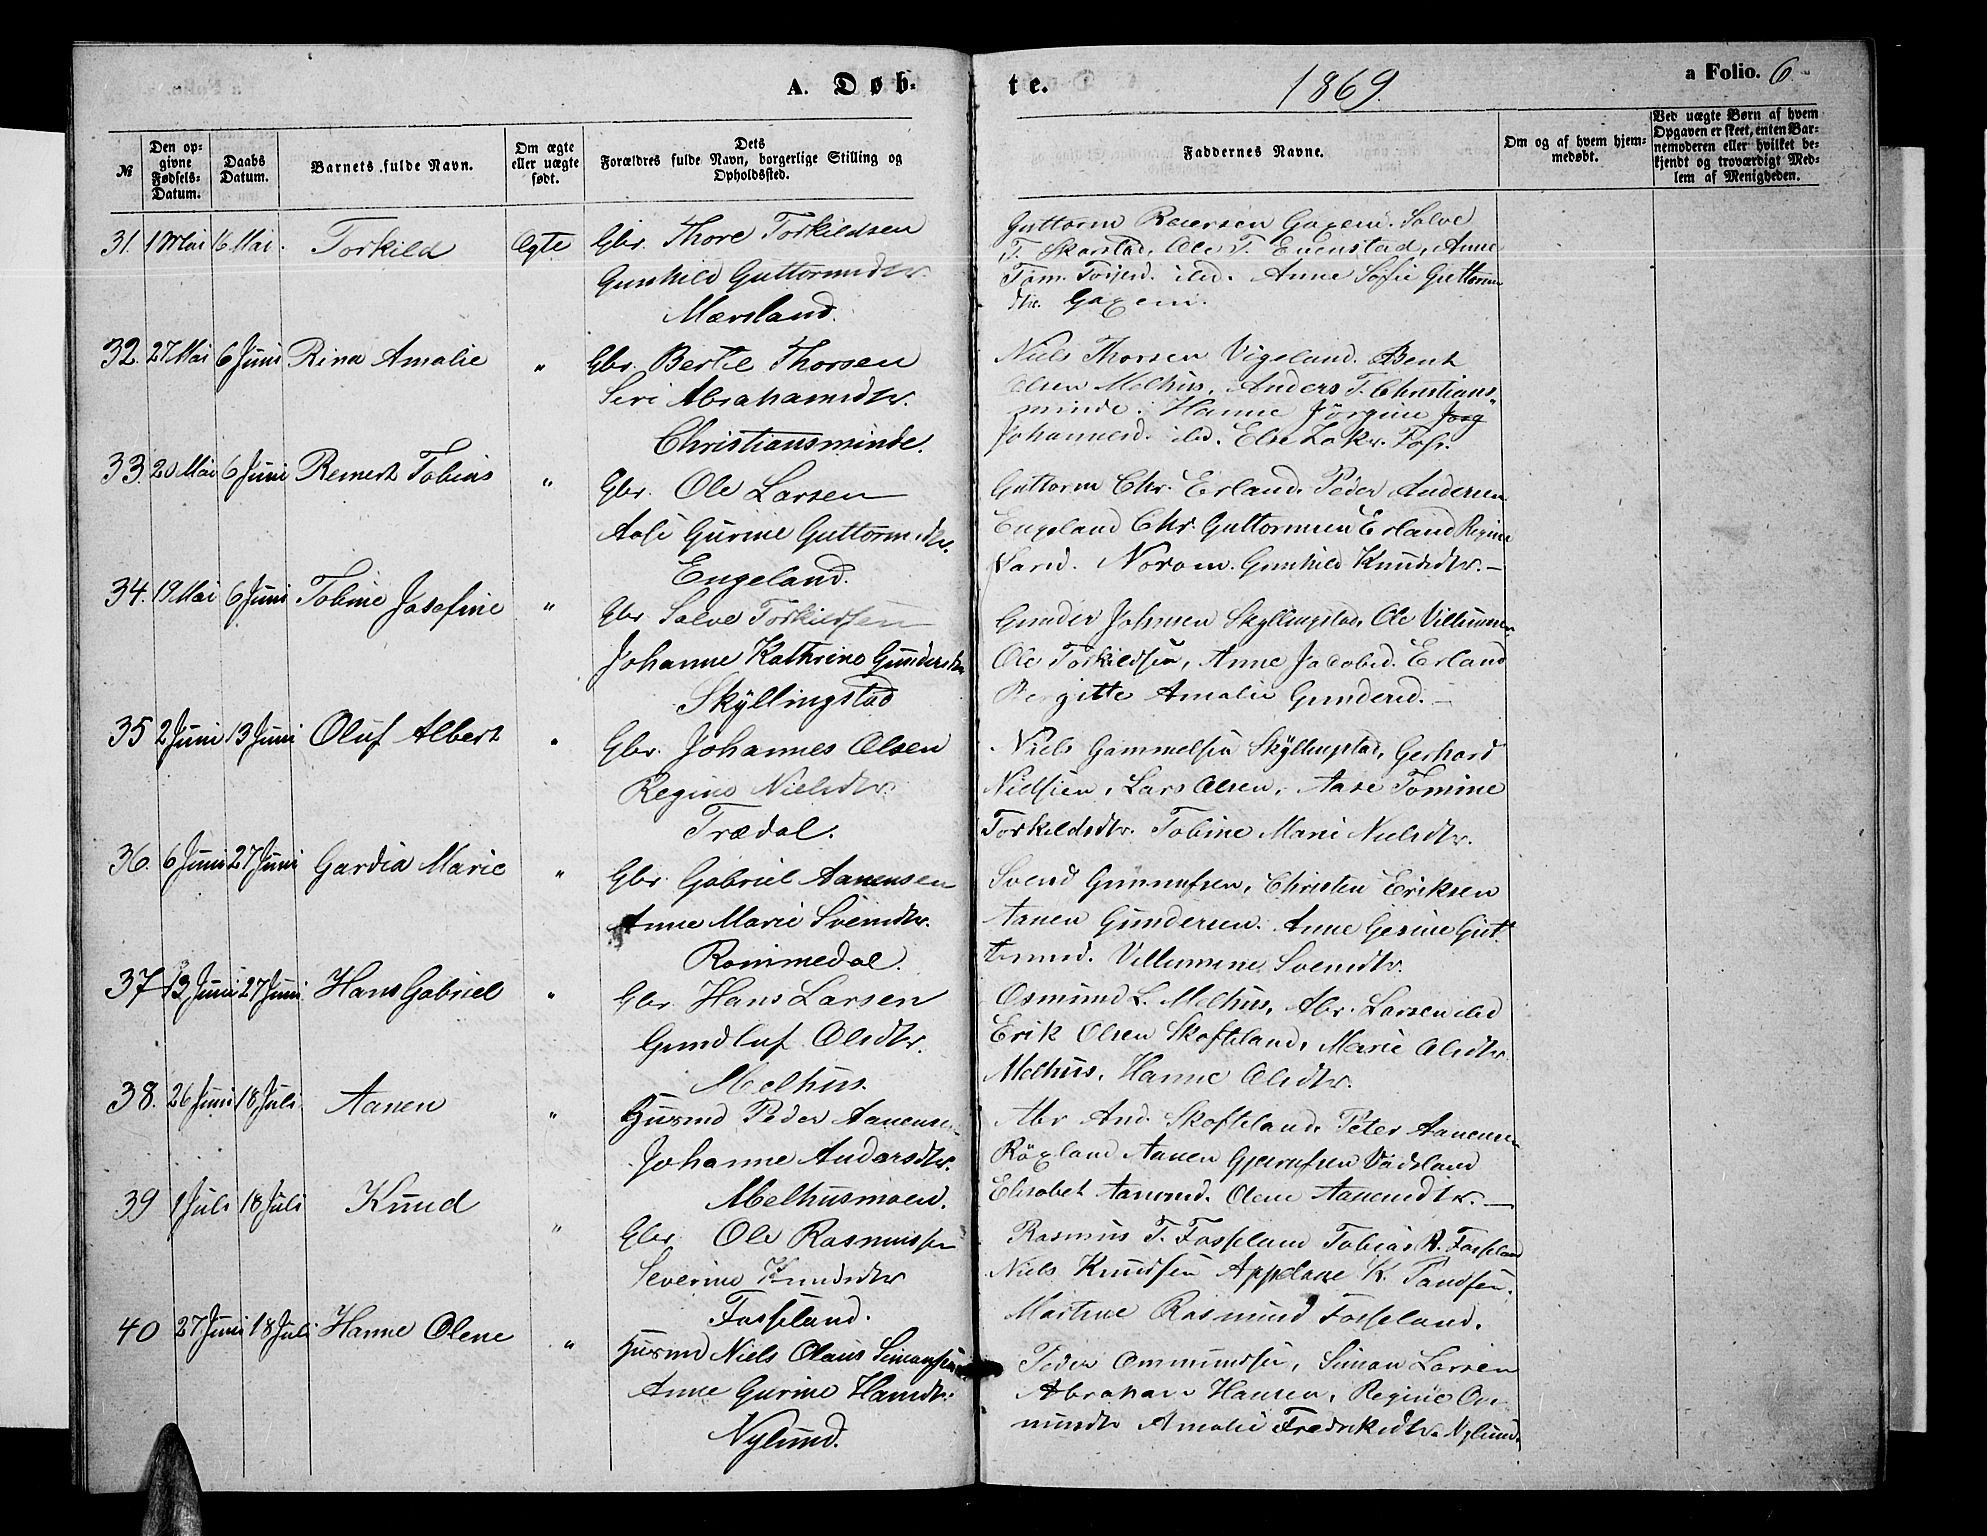 A. Døb-
te.
1869.
a Folio. 6
№
Den opgivne Fødsels-Datum.
Daabs Datum.
Barnets fulde Navn.
Om ægte eller uægte født.
Dets Forældres fulde Navn, borgerlige Stilling og Opholdssted.
Faddernes Navne.
Om og af hvem hjemmedøbt.
Ved uægte Børn af hvem Opgaven er skeet, enten Barnemoderen eller hvilket bekjendt og troværdigt Medlem af Menigheden.
31. 1 Mai 16 Mai. Torkild Ægte Gbr. Thore Torkildsen
Gunhild Guttormsdtr.
Mærsland.
Guttorm Reiersen Salve
T. Skarstad, Ole T. Evenstad, Anne
Anne Sofie Guttorms
dtr.
32. 27 Mai 6 Juni Rina Amalie " Gbr. Bertil Thorsen
Siri Abrahamsdtr.
Christiansminde.
Niels Thorsen Vigeland. Bent
Olsen Melhus, Anders T. Christians
minde. Hanne Jörgine
Johannesd. ibd. Else
33. 20 Mai 6 Juni Remert Tobias " Gbr. Ole Larsen
Gurine Guttormsdtr.
Engeland.
Guttorm Chr. Erland. Peder Andersen
Engeland Chr. Guttormsen Erland Regine
Larsd. Norom. Gunhild Knudsdtr. -
34. 19 Mai 6 Juni Tobine Josefine " Gbr. Salve Torkildsen
Johanne Kathrine Gundersdtr
Skyllingstad
Gunder Johnsen Skyllingstad, Ole Villumsen
Ole Torkildsen, Anne Jacobsd. Erland
Bergitte Amalie Gundersd. -
35 2 Juni 13 Juni Oluf Albert " Gbr. Johannes Olsen
Regine Nielsdtr.
Trædal.
Niels Gammelsen Skyllingstad, Gerhard
Nielsen, Lars Olsen, Aase Tomine
Torkildsdtr. Tobine Marie Nielsdtr.
36. 6 Juni 27 Juni Gardia Marie " Gbr. Gabriel Aanensen
Anne Marie Svendsdtr.
Rommedal.
Svend Gunnufsen, Christen Eriksen
Aanen Gundersen. Anne Gesine Gut
tormsd. Villumine Svendsdtr.
37 13 Juni 27 Juni Hans Gabriel " Gbr. Hans Larsen
Gundluf Olsdtr.
Melhus.
Osmund L. Melhus, Abr. Larsen ibd
Erik Olsen Skofteland, Marie Olsdtr.
Melhus, Hanne Olsdtr.
38. 26 Juni 18 Juli Aanen " Husmd Peder Aanensen
Johanne Andersdtr.
Melhusmoen.
Abr And. Skofteland, Peter Aanensen
Röxland Aanen Gjerufsen Vadsland
Elisabet Aanensd. Olene Aanensdtr. -
39 1 Juli 18 Juli Knud " Gbr. Ole Rasmussen
Severine Knudsdtr
Fosseland.
Rasmus T. Fosseland Tobias R. Fosseland
Niels Knudsen K.
Martine Rasmusd Fosseland.
40 27 Juni 18 Juli Hanne Olene " Husmd Niels Olaus Simonsen
Anne Gurine Hansdtr.
Nylund.
Peder Ommundsen, Simon Larsen
Abraham Hansen, Regine Om
mundsdtr Amalie Fredriksdtr. Nylund.